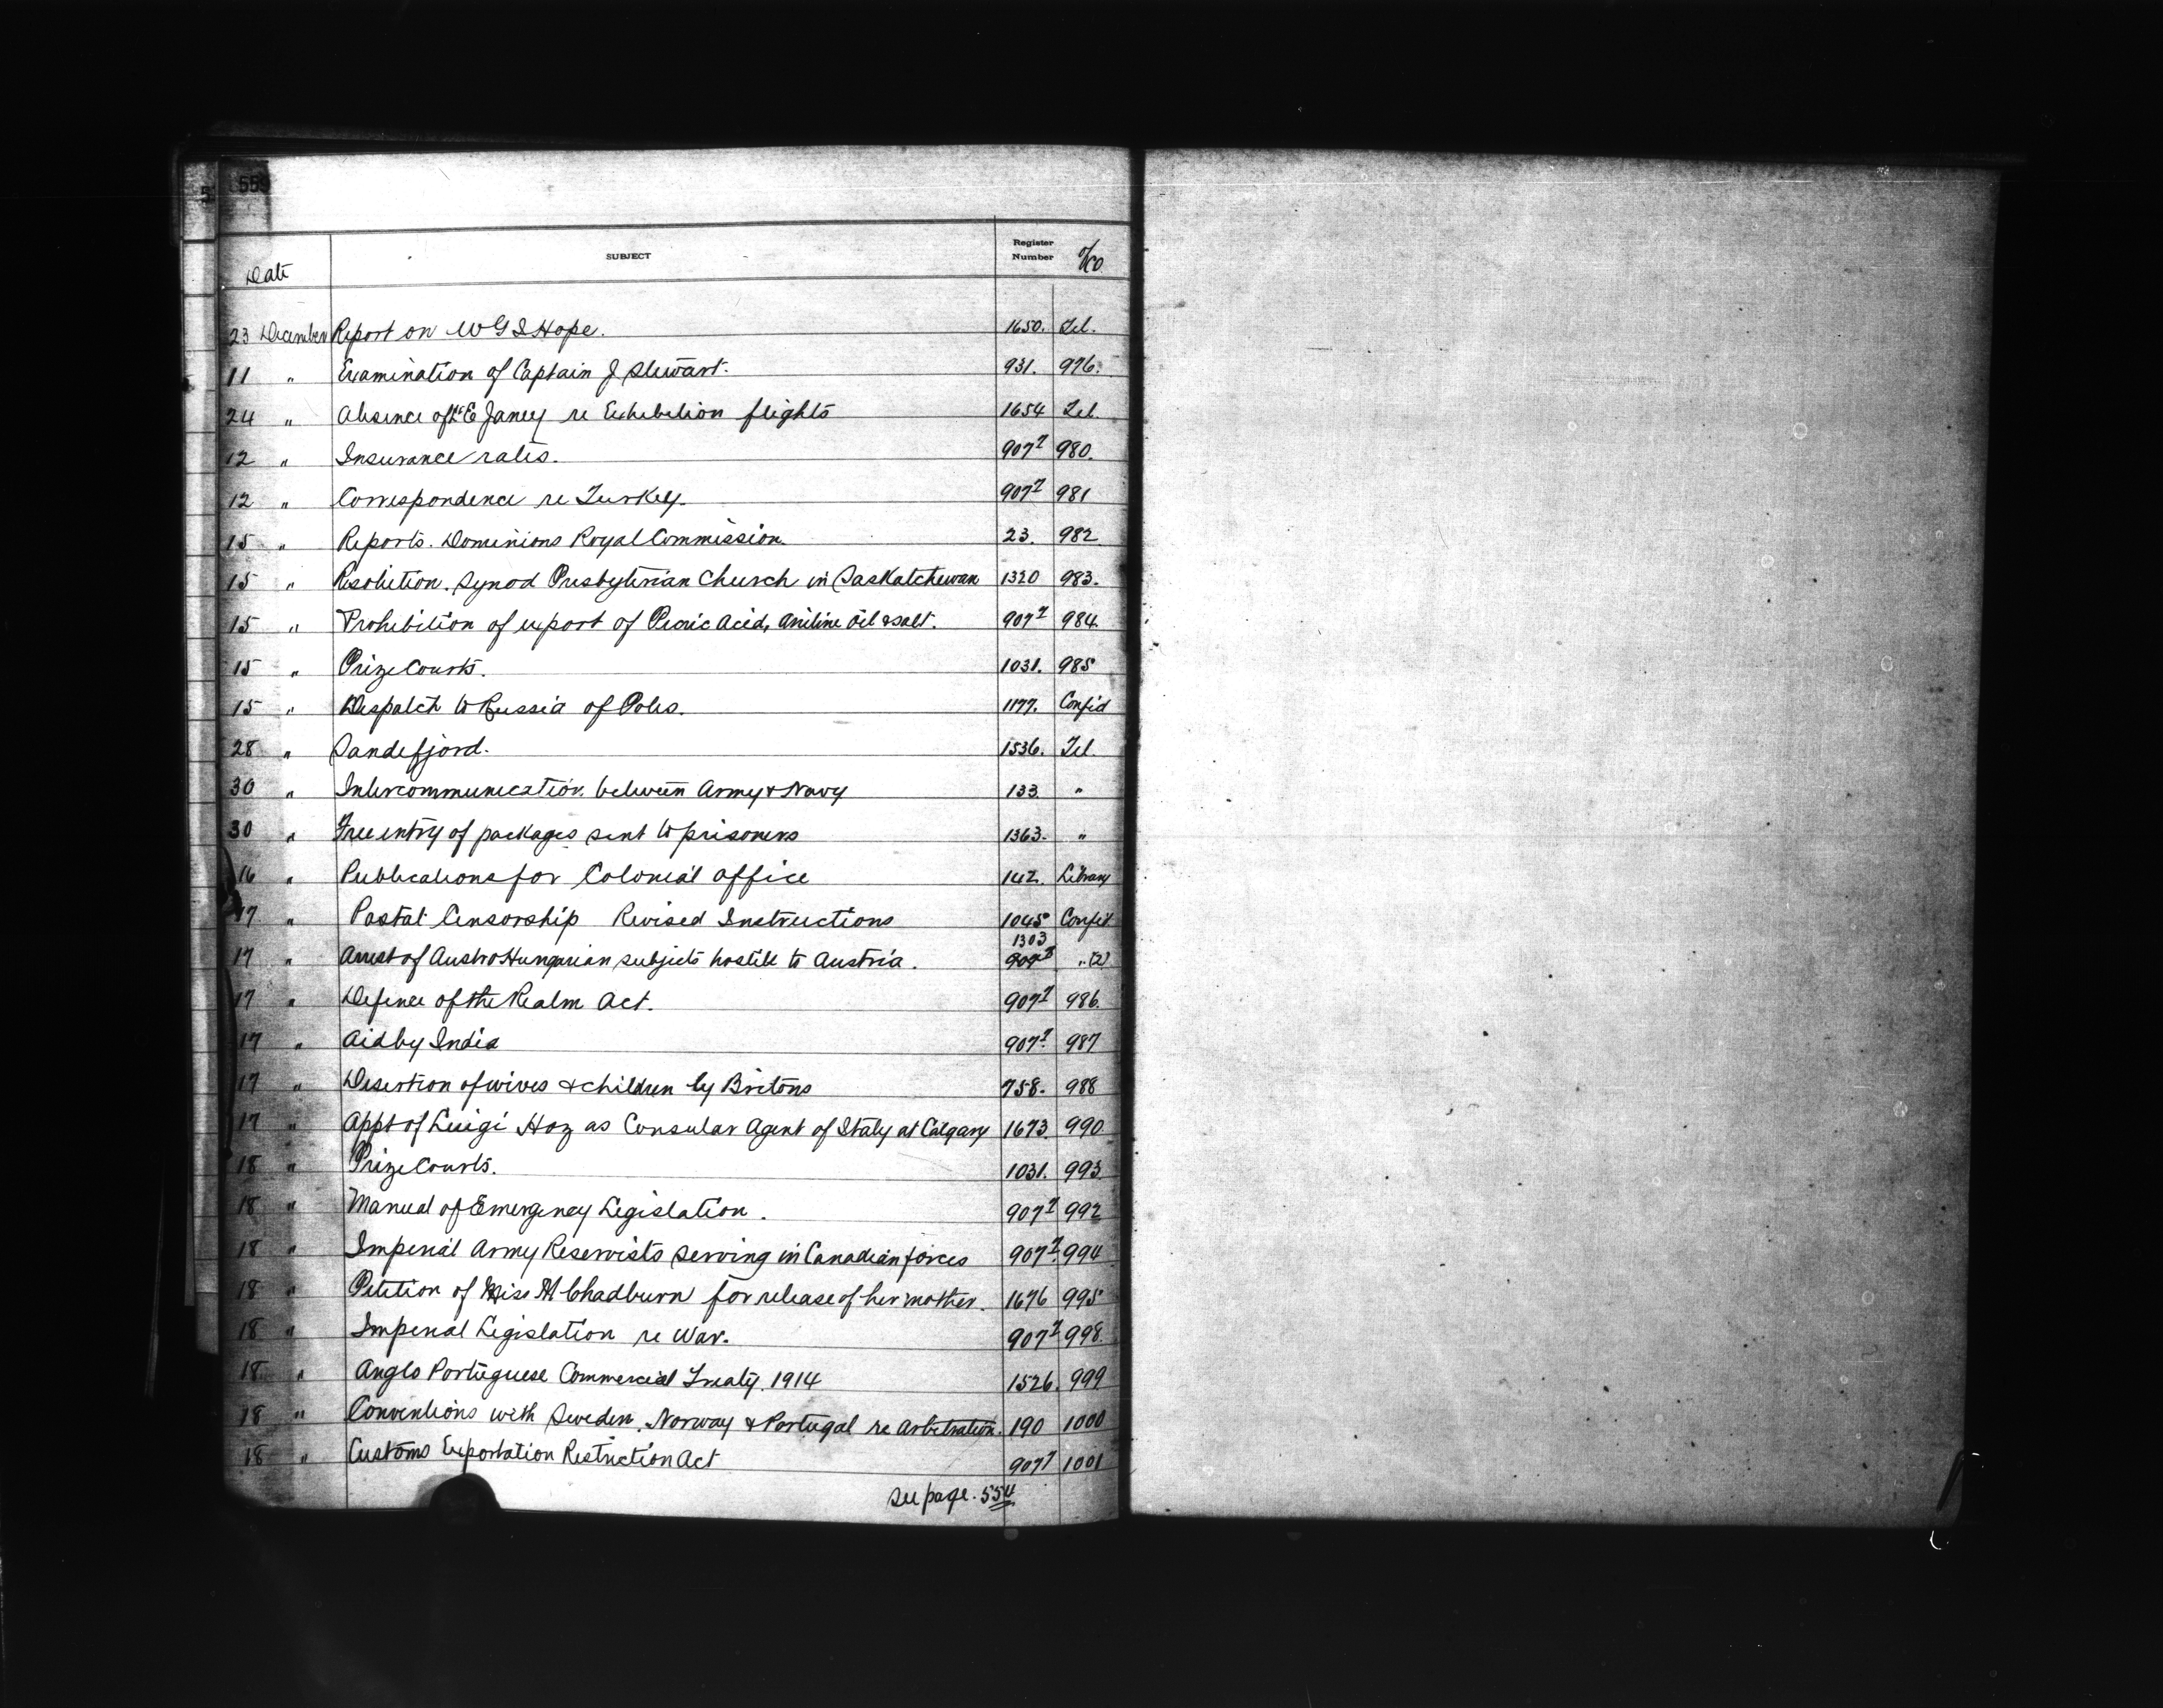 559
Date SUBJECT Register Number
23 December Report on W G S Hope. 1650. Tel.
11 " Examination of Captain J Stewart. 931. 976.
24 " Absence of W E Janey re Exhibition flights 1654 Tel.
12 " Insurance rates. 907⁷ 980.
12 " Correspondence re Turkey. 907⁷ 981
15 " Reports. Dominions Royal Commission. 23. 982
15 " Resolution. Synod Presbyterian Church in Saskatchewan 1320 983.
15 " Prohibition of export of Picric Acid, Aniline Oil & salt. 907⁷ 984.
15 " Prize Courts. 1031. 985
15 " Despatch to Russia of Poles. 1177. Confid
28 " Sandefjord. 1536. Tel.
30 " Intercommunication between Army & Navy 133. "
30 " Free entry of packages sent to prisoners 1363. "
16 " Publications for Colonial Office 142. Library
17 " Postal Censorship Revised Instructions 1045 Confid.
17 " Arrest of Austro Hungarian subjects hostile to Austria. 1303 907⁷ " (2)
17 " Defence of the Realm Act. 907⁷ 986.
17 " Aid by India 907⁷. 987
17 " Desertion of wives & children by Britons 758. 988
17 " Appt of Luigi Hoz as Consular Agent of Italy at Calgary 1673. 990
18 " Prize Courts. 1031. 993
18 " Manual of Emergency Legislation. 907⁷ 992
18 " Imperial Army Reservists serving in Canadian forces 907⁷. 994
18 " Petition of Miss M Chadburn for release of her mother. 1676 995
18 " Imperial Legislation re War. 907⁷ 998.
18 " Anglo Portuguese Commercial Treaty. 1914 1526. 999
18 " Conventions with Sweden, Norway & Portugal re Arbitration. 190 1000
18 " Customs Exportation Restriction Act 907⁷ 1001
See page. 554